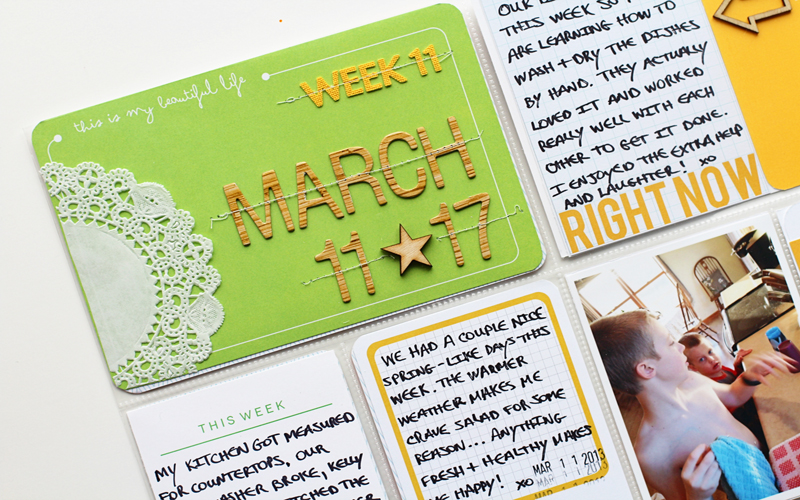 this is my beautiful life
WEEK 11
MARCH
11 ★ 17
OUR
THIS WEEK SO
ARE LEARNING HOW TO
WASH + DRY THE DISHES
BY HAND. THEY ACTUALLY
LOVED IT AND WORKED
REALLY WELL WITH EACH
OTHER TO GET IT DONE.
I ENJOYED THE EXTRA HELP
AND LAUGHTER! XO
RIGHT NOW
THIS WEEK
MY KITCHEN GOT MEASURED
FOR COUNTERTOPS, OUR
BROKE, KELLY
THE
WE HAD A COUPLE NICE
SPRING-LIKE DAYS THIS
WEEK. THE WARMER
WEATHER MAKES ME
CRAVE SALAD FOR SOME
REASON... ANYTHING
FRESH + HEALTHY MAKES
ME HAPPY! XO
MAR 11 2013
MAR 11 2013